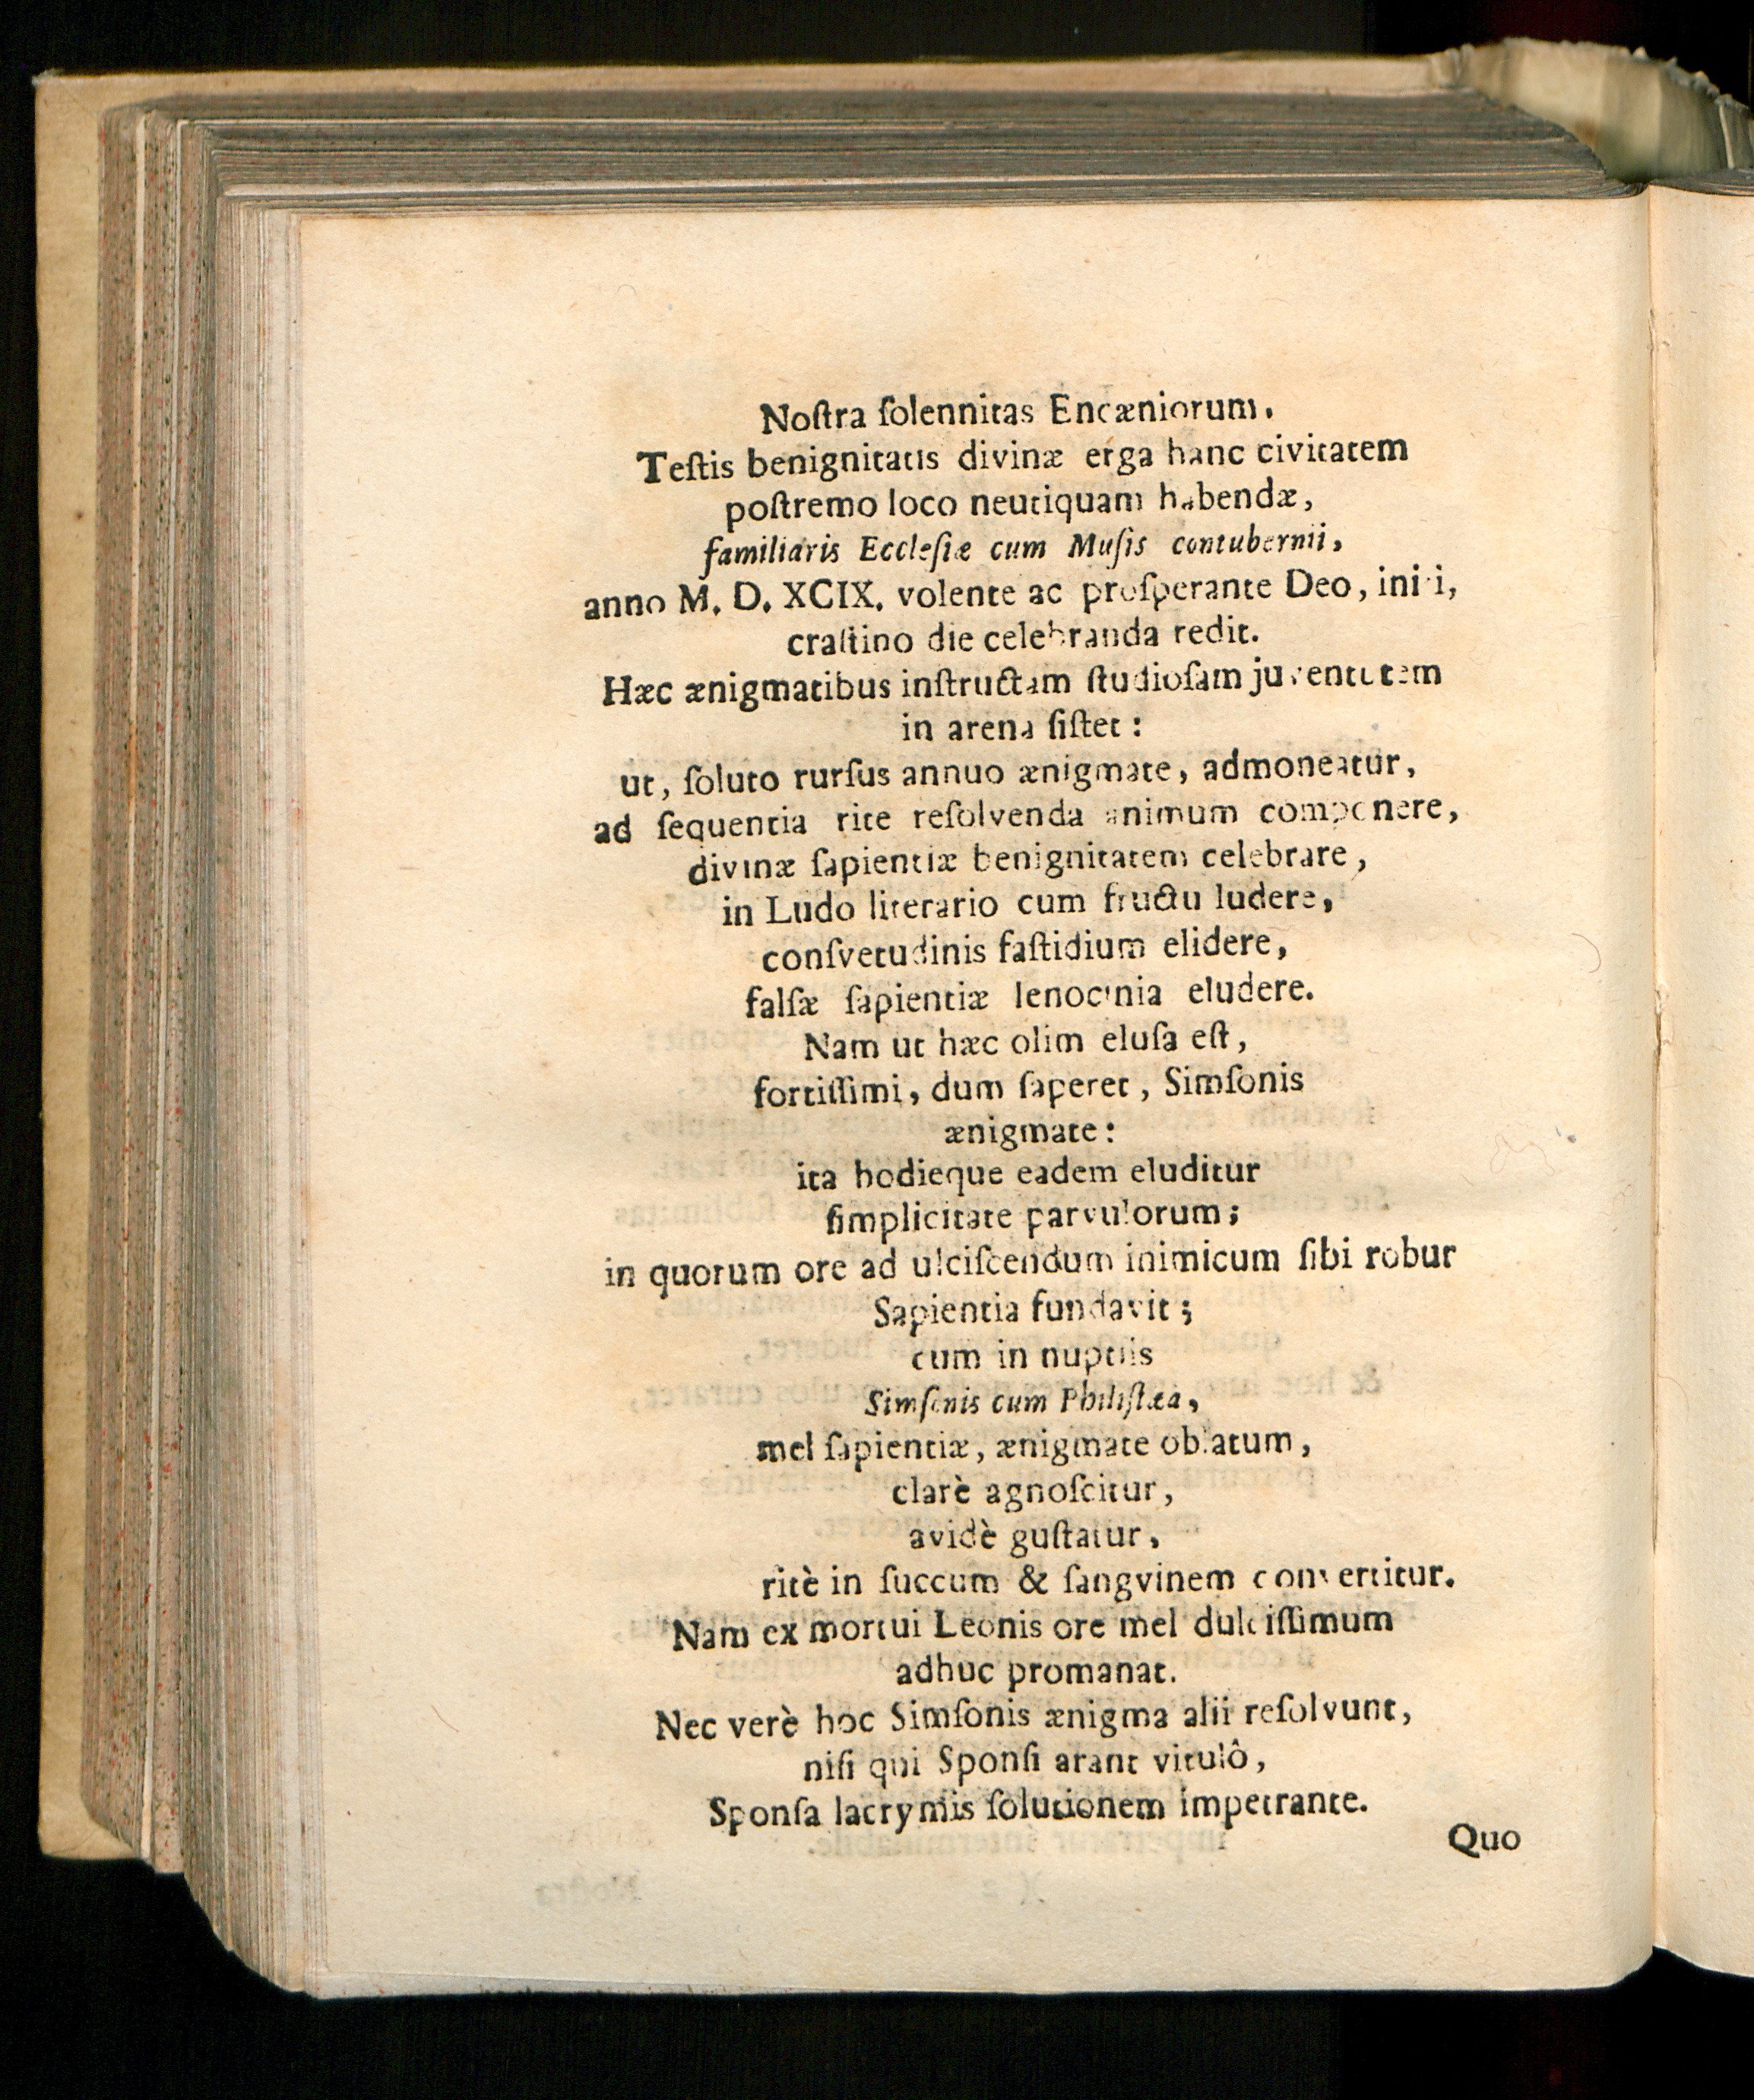 Noſtra ſolennitas Encæniorum.
Teſtis benignitatis divinæ erga hanc civitatem
poſtremo loco neutiquam habendæ,
familiaris Eccleſiæ cum Muſis contubernii,
anno M. D. XCIX. volente ac proſperante Deo, initi,
craſtino die celebranda redit.
Hæc ænigmatibus inſtructam ſtudioſam juventutem
in arena ſiſtet:
ut, ſoluto rurſus annuo ænigmate, admoneatur,
ad ſequentia rite reſolvenda animum componere,
divinæ ſapientiæ benignitatem celebrare,
in Ludo literario cum fructu ludere,
conſvetudinis faſtidium elidere,
falſæ ſapientiæ lenocinia eludere.
Nam ut hæc olim eluſa eſt,
fortiſſimi, dum ſaperet, Simſonis
ænigmate:
ita hodieque eadem eluditur
ſimplicitate parvulorum;
in quorum ore ad ulciſcendum inimicum ſibi robur
Sapientia fundavit;
cum in nuptiis
Simſonis cum Philiſtæa,
mel ſapientiæ, ænigmate oblatum,
clarè agnoſcitur,
avidè guſtatur,
ritè in ſuccum & ſangvinem convertitur.
Nam ex mortui Leonis ore mel dulciſſimum
adhuc promanat.
Nec verè hoc Simſonis ænigma alii reſolvunt,
niſi qui Sponſi arant vitulô,
Sponſa lacrymis ſolutionem impetrante.
Quo